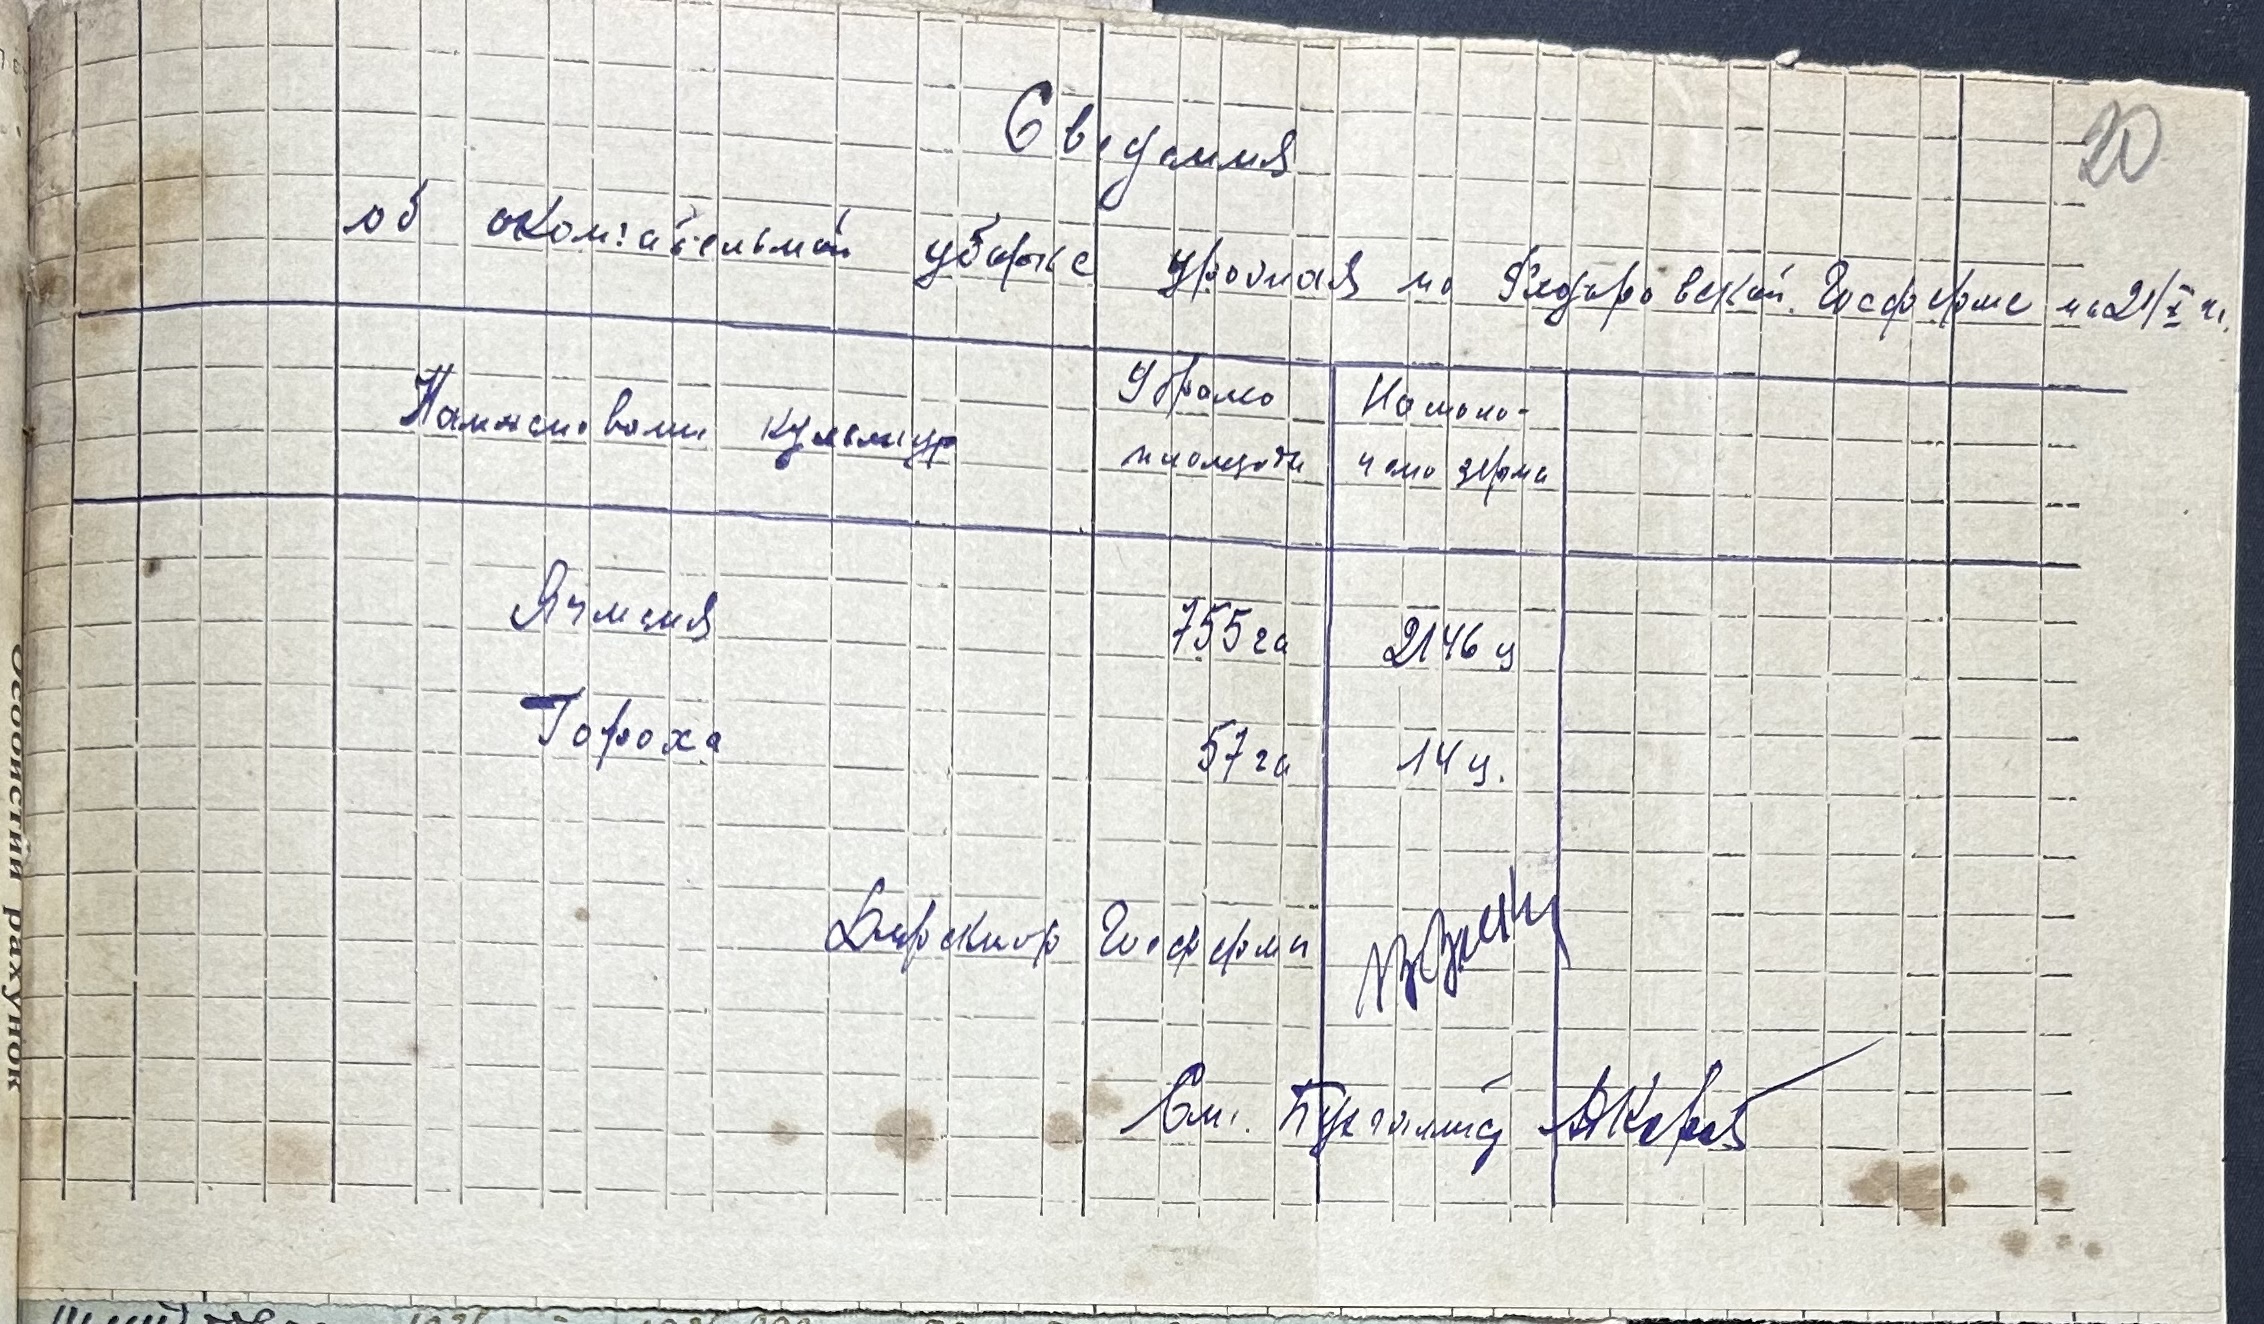 20
Сведения
об окончательной уборке урожая по Федоровской Госферме на 21/X м.
Наименован. культур
Убрано площади
Намоло-
чено зерна
Ячменя 755 га 2146 ц
Гороха 57 га 14 ц.
Директор Госфермы
Ст. Бухгалтер
Особистий рахунок